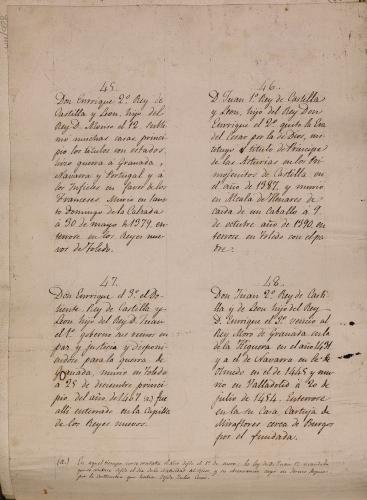 45.
Don Enrrique 2º Rey de
Castilla y Leon, hijo del
Rey D. Alonso el 12.
muchas casas, princi
pio los titulos con estados,
hizo guerra á Granada,
Navarra y Portugal y á
los Infieles en favor de los
Franceses Murio en San
to Domingo de la Calzada
á 30 de mayo de 1379, en
terrose en los Reyes nue
vos de Toledo.
46.
D. Juan 1º Rey de Castilla
y Leon, hijo del Rey Don
Enrrique el 2º quitó la Era
del Cesar por la de Dios, ins
tituyo el titulo de Principe
de las Asturias en los Pri
mojenitos de Castilla en
el año de 1387, y murio
en Alcala de Henares de
caida de un Caballo á 9
de octubre año de 1390 en
terrose en Toledo con el pa
dre.
47.
Don Enrrique el 3º el Do
liente, Rey de Castilla y
Leon hijo del Rey D. Juan
el 1º governo su reino en
paz y justicia y disponi
endose para la guerra de
Granada, murio en Toledo
á 25 de diciembre princi
pio del año de 1407 (a) fue
alli enterrado en la Capilla
de los Reyes nuevos.
48.
Don Juan 2º Rey de Casti
lla y de Leon hijo del Rey
D. Enrrique el 3º vencio al
Rey Moro de Granada en la
de la Higuera en el año 1431
y a el de Navarra en la de
Olmedo en el de 1445 y mu
rio en Valladolid á 20 de
julio de 1454. Enterrose
en la su Casa Cartuja de
Miraflores cerca de Burgos
por el fundada.
(a.) En aquel tiempo